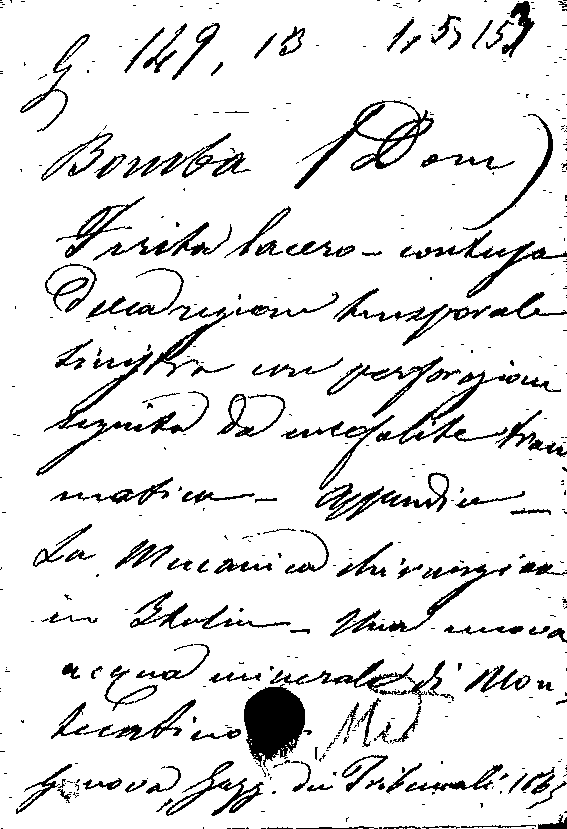 G. 149, 13
Bomba (Dom)
Ferita lacero-contusa
della regione temporale
sinistra con perforazione
seguita da encefalite trau
matica - Appendice -
La Meccanica chirurgica
in Italia - Una nuova
acqua minerale di Mon-
tecatino - Med
Genova, Gazz. dei Tribunali. 186